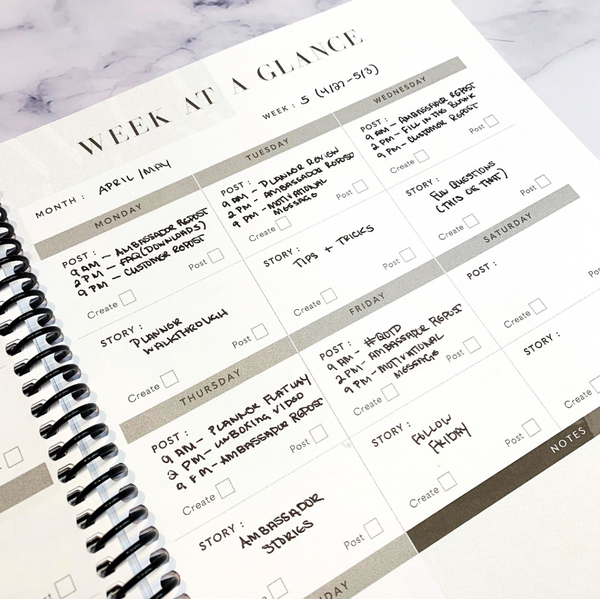 WEEK AT A GLANCE
MONTH : APRIL / MAY
WEEK : 5 (4/27-5/3)
MONDAY
POST :
9 AM - AMBASSADOR REPOST
2 PM - FAQ (DOWNLOADS)
9 PM - CUSTOMER REPOST
Create
Post
STORY :
PLANNER
WALKTHROUGH
Create
Post
TUESDAY
POST :
9 AM - PLANNER REVIEW
2 PM - AMBASSADOR REPOST
9 PM - MOTIVATIONAL
MESSAGE
Create
Post
STORY :
TIPS + TRICKS
Create
Post
WEDNESDAY
POST :
9 AM - AMBASSADOR REPOST
2 PM - FILL IN THE BLANK
9 PM - CUSTOMER REPOST
Create
Post
STORY :
FUN QUESTIONS
(THIS OR THAT)
Create
Post
THURSDAY
POST :
9 AM - PLANNER FLATLAY
2 PM - UNBOXING VIDEO
9 PM - AMBASSADOR REPOST
Create
Post
STORY :
AMBASSADOR
STORIES
Post
FRIDAY
POST :
9 AM - #QOTD
2 PM - AMBASSADOR REPOST
9 PM - MOTIVATIONAL
MESSAGE
Create
Post
STORY :
FOLLOW
FRIDAY
Create
Post
SATURDAY
POST :
Create
STORY :
Create
NOTES